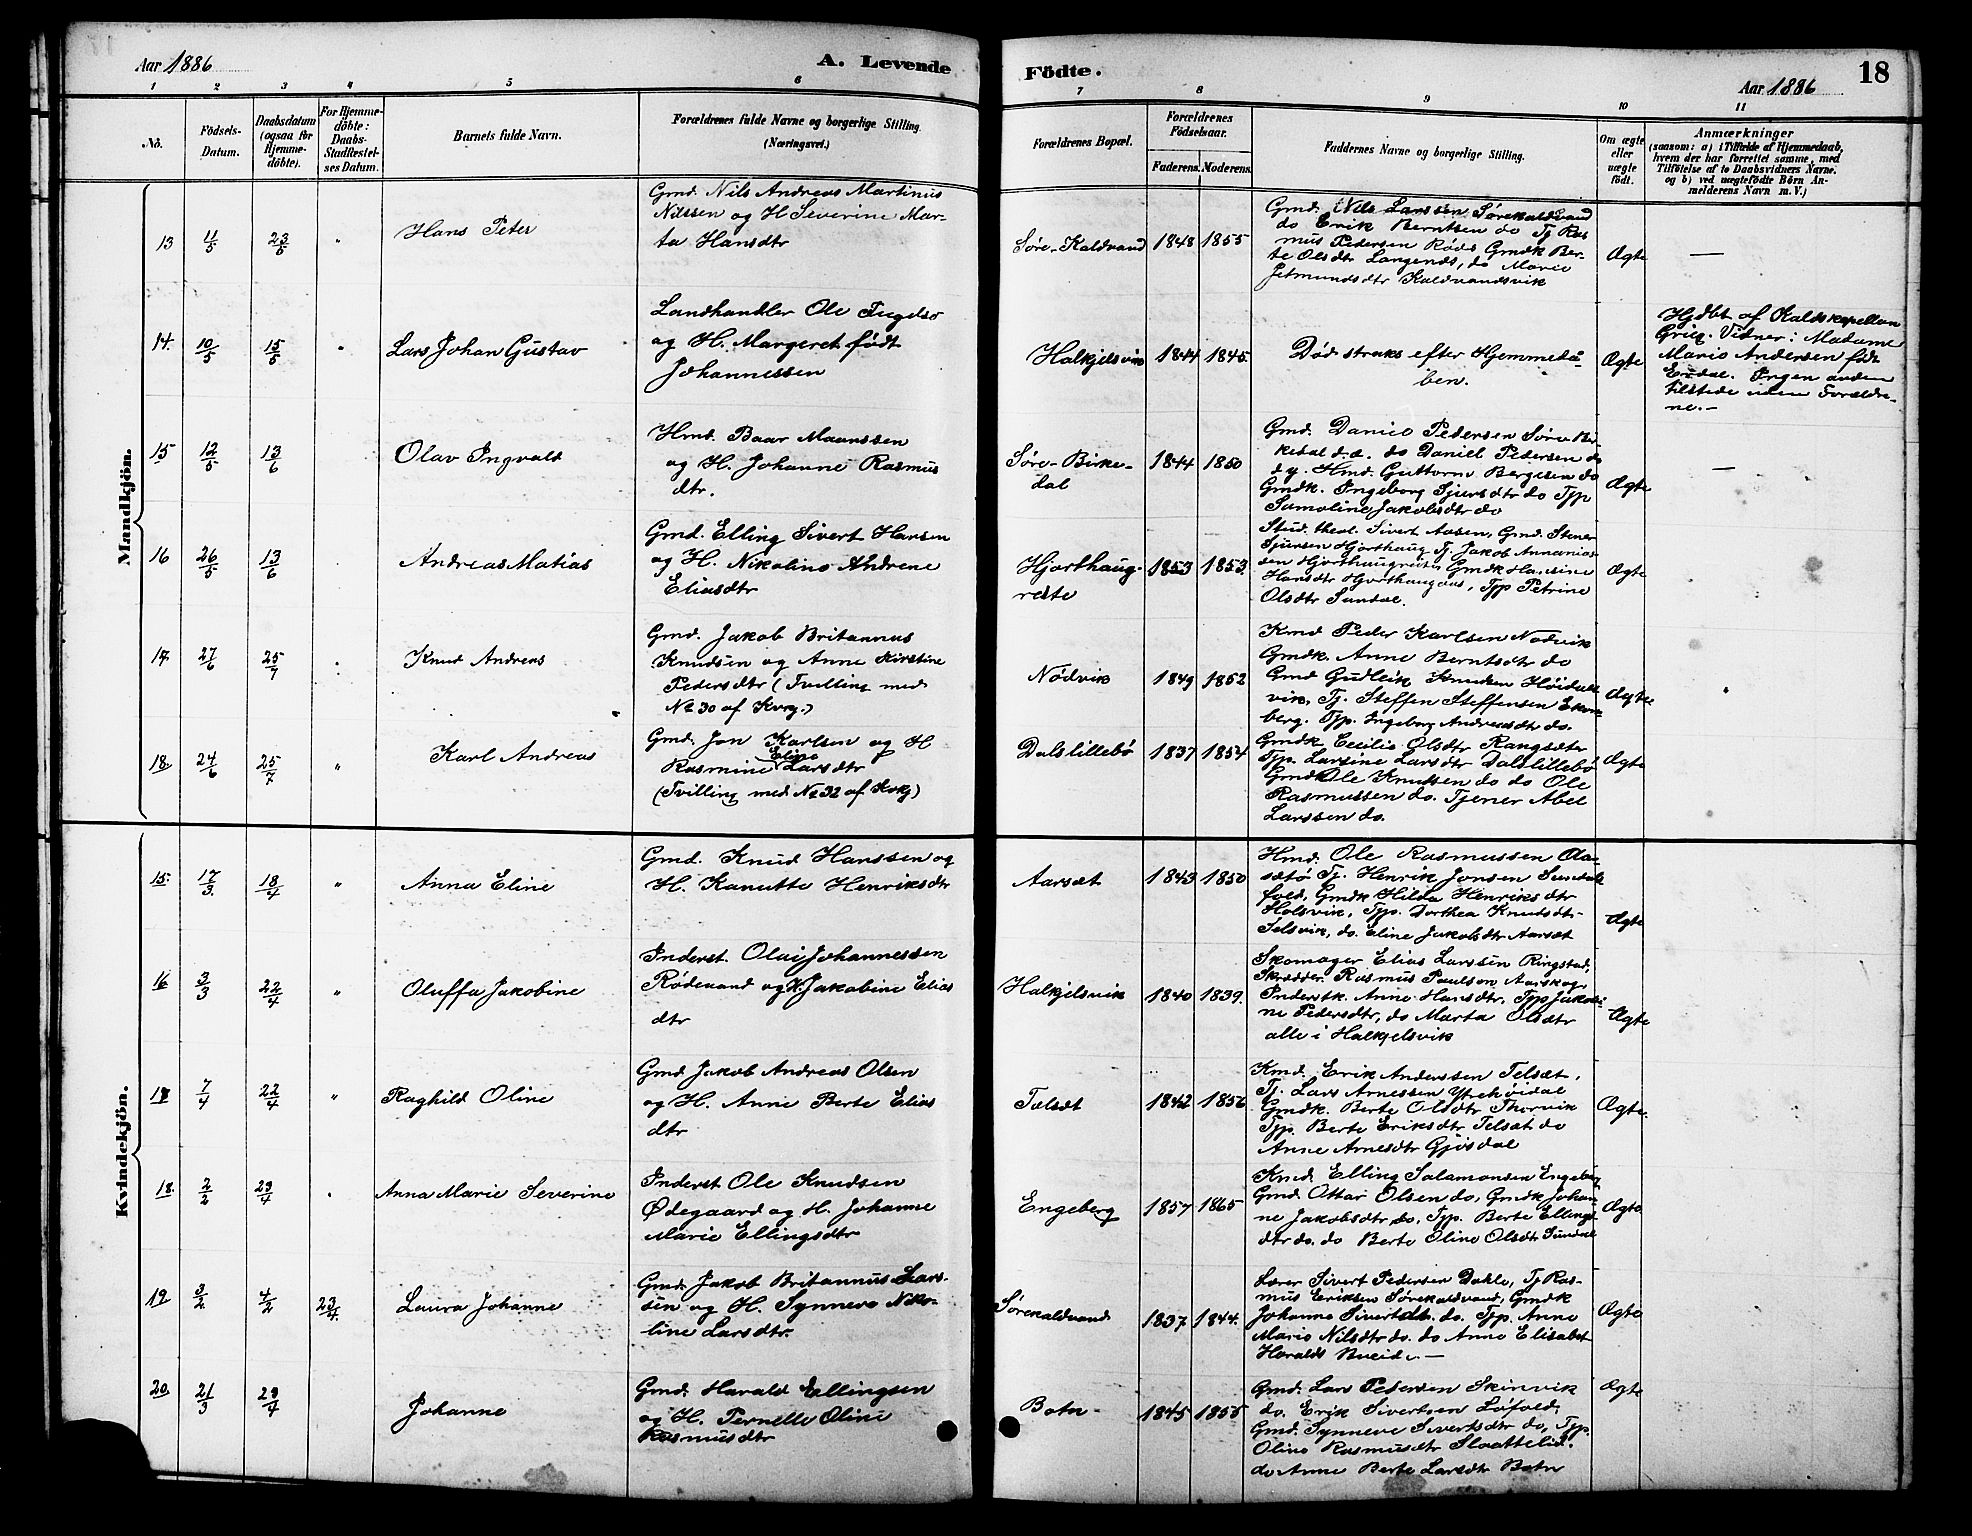 Aar 1886
A. Levende
Födte.
Aar 1886
18
1 2 3 4 5 6 7 8 9 10 11
No.
Födsels-
Datum.
Daabsdatum
(ogsaa för
Hjemme-
döbte).
For Hjemme-
döbte:
Daabs-
Stadfæstel-
ses Datum.
Barnets fulde Navn.
Forældrenes fulde Navne og borgerlige Stilling.
(Næringsvei.)
Forældrenes Bopæl.
Forældrenes
Födselsaar.
Faderens. Moderens.
Faddernes Navne og borgerlige Stilling.
Om ægte
eller
uægte
født.
Anmærkninger
(saasom: a) i Tilfælde af Hjemmedaab,
hvem der har forrettet samme, med
Tilföielse af to Daabsvidners Navne,
og b) ved uægtefödte Börn An-
melderens Navn m. V.)
Mandkjön.
13
11/5
23/5
"
Hans Peter
Gmd. Nils Andreas Martinus
Nilssen og H Severine Mar-
ta Hansdtr
Søre-Kaldvand
1848
1855
Gmd. Nils Larssen Sørekaldvand
do Erik Berntsen do Tj Ras
mus Pedersen Røds Gmdk Ber-
te Olsdtr Langenæs, do Marie
Jetmundsdtr Kaldvandsvik
Ægte
—
14.
10/5
15/5
"
Lars Johan Gustav
Landhandler Ole
og H. Margeret født
Johannessen
Halkjelsvik
1844
1845
Død straks efter Hjemmedå-
ben.
Ægte
Hjdbt af Kaldskapellan
Grieg. Vidner: Madame
Marie Andersen født
Endal. Ingen anden
tilstede uden Forældre-
ne.-
15
12/5
13/6
Olav Ingvald
Hmd. Baar Maurssen
og H. Johanne Rasmus
dtr.
Søre-Birke-
dal
1844
1850
Gmd. Daniel Pedersen Søre Bir-
kedal d.æ. do Daniel Pedersen do
d.y. Hmd. Guttorm Bergesen do
Gmdk. Ingeborg Sjursdtr do Tjp
Samoline Jakobsdtr do
Ægte
—
16
26/5
13/6
Andreas Matias
Gmd. Elling Sivert Hansen
og H. Nikoline Andrene
Eliasdtr
Hjorthaug-
reite
1853
1853.
Stud. theol. Sivert Aasen, Gmd. Stener
Sjursen Hjorthaug Tj. Jakob Annanias
sen Hjorthaugreite, Gmdk Hansine
Hansdtr Hjorthaugaas, Tjp Petrine
Olsdtr Sundal.
Ægte
17
27/6
25/7
Knud Andreas
Gmd. Jakob Britannus
Knudsen og Anne Kirstine
Pedersdtr (Tvilling med
No 30 af Kvkj.)
Nødvik
1849
1852
Kmd Peder Karlsen Nødvik
Gmdk. Anne Berntsdtr do
Gmd Gudleik Knudsen Høidals
vik, Tj. Steffen Steffensen Ekre-
berg. Tjp. Ingeborg Andreasdtr do.
Ægte
18.
24/6
25/7
"
Karl Andreas
Gmd. Jon Karlsen og H
Rasmine Eline Larsdtr
(Tvilling med No 32 af Kvkj)
Dalslillebö
1837
1854
Gmdk Cecilie Olsdtr Rangsæter
Tjp. Larsine Larsdtr Dalslillebö
Gmdk Ole Knutsen do do Ole
Rasmussen do. Tjener Abel
Larssen do.
Ægte
Kvindekjön.
15.
17/3.
18/4
"
Anna Eline
Gmd. Knud Hanssen og
H. Kanutte Henriksdtr
Aarsæt
1843
1850
Hmd. Ole Rasmussen Aar-
sætø Tj. Henrik Jonsen Sundal
fold, Gmdk Hilda Henriksdtr
Holsvik, Tjp. Dorthea Knudsdtr-
Telsvik, do. Eline Jakobsdtr Aarsæt
Ægte
16
3/3
22/4
"
Oluffa Jakobine
Inderst. Olai Johannessen
Rødevand og H. Jakobine Elias
dtr
Halkjelsvik
1840
1839.
Skomager Elias Larssen Ringstad,
Skrædder Rasmus Paulson Aarskog,
Inderstk. Anne Hansdtr, Tjp Jakobi-
ne Pedersdtr, do Marta Olsdtr
alle i Halkjelsvik
Ægte
17
7/4
22/4
"
Raghild Oline
Gmd Jakob Andreas Olsen
og H. Anne Berte Elias
dtr
Telsæt
1842
1856
Kmd. Erik Anderssen Telsæt,
Tj. Lars Arnessen Ytrehöidal
Gmdk. Berte Olsdtr Thorvik
Tjp. Berte Eriksdtr Telsæt do
Anne Arnesdtr Gjøsdal
Ægte.
18.
2/2
29/4
Anna Marie Severine
Inderst Ole Knudsen
Ødegaard og H. Johanne
Marie Ellingsdtr
Engeberg
1857
1865
Kmd. Elling Salamonsen Engeberg
Gmd. Ottar Olsen do, Gmdk Johan-
ne Jakobsdtr do, Tjp. Berte Ellings-
dtr do. do Berte Oline Olsdtr Sundal
Ægte
19
3/2
4/2
23/4.
Laura Johanne
Gmd. Jakob Britannus Lars-
sen og H. Synneve Niko-
line Larsdtr.
Sørekaldvand
1837
1844.
Lærer Sivert Pedersen Dahle, Tj Ras-
mus Eriksen Sørekaldvand, Gmdk
Johanne Sivertsdtr. do. Tjp. Anne
Marie Nilsdtr do. do Anne Elisabet
Haralds Bueide. —
Ægte
20
21/3
29/4
Johanne
Gmd. Harald Ellingsen
og H. Pernelle Oline
Rasmusdtr
Botn-
1845
1855
Gmd. Lars Pedersen Skinvik
do. Erik Sivertsen Løfold,
Gmd. Synneve Sivertsdtr do, Tjp.
Oline Rasmusdtr Slaattelid.
do Anne Berte Larsdtr Botn
Ægte